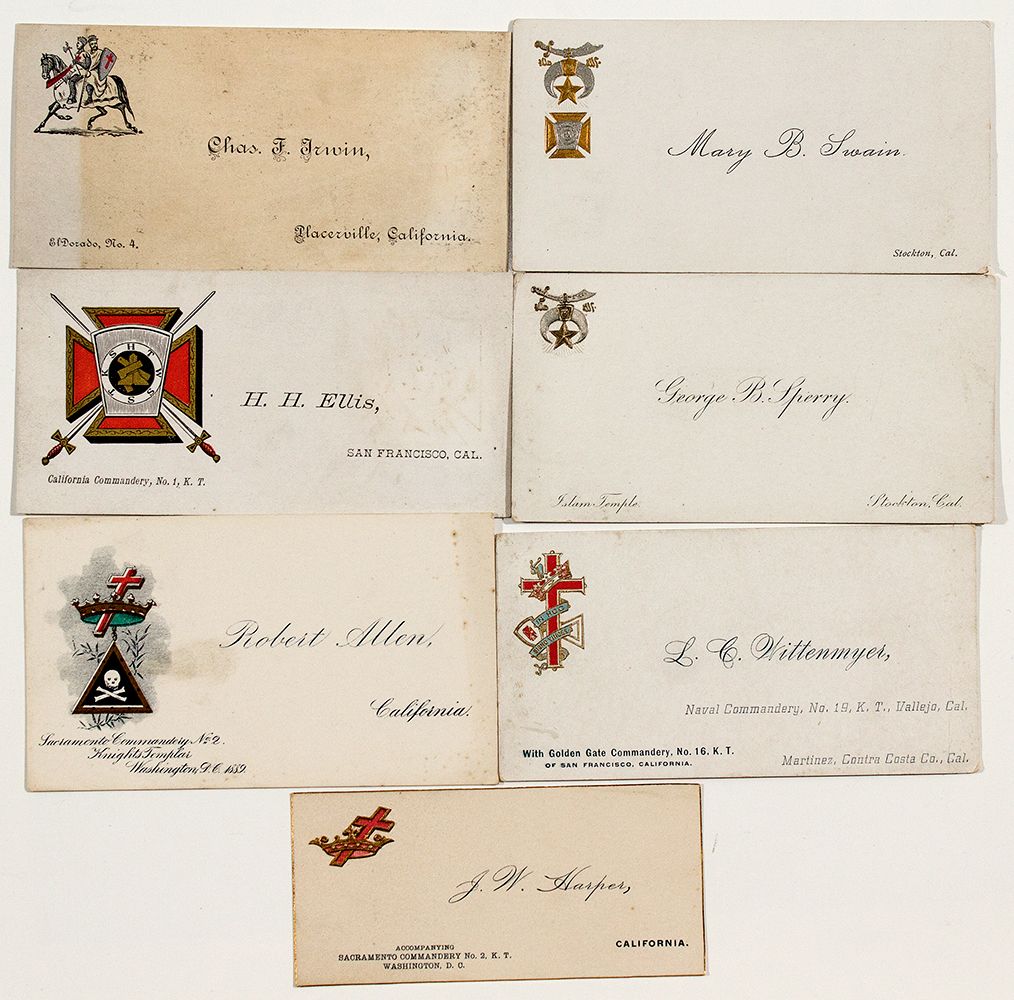 Chas. F. Irwin,
Placerville, California.
ElDorado, No. 4.
Mary B. Swain.
Stockton, Cal.
K S H T W S S T
H. H. Ellis,
SAN FRANCISCO, CAL.
California Commandery, No. 1, K. T.
George B. Sperry.
Islam Temple.
Stockton, Cal.
Robert Allen,
California.
Sacramento Commandery No. 2.
Knights Templar
Washington, D.C. 1889.
IN HOC
L. C. Wittenmyer,
Naval Commandery, No. 19, K. T., Vallejo, Cal.
With Golden Gate Commandery, No. 16, K. T.
OF SAN FRANCISCO, CALIFORNIA.
Martinez, Contra Costa Co., Cal.
J. W. Harper,
CALIFORNIA.
ACCOMPANYING
SACRAMENTO COMMANDERY No. 2, K. T.
WASHINGTON, D. C.